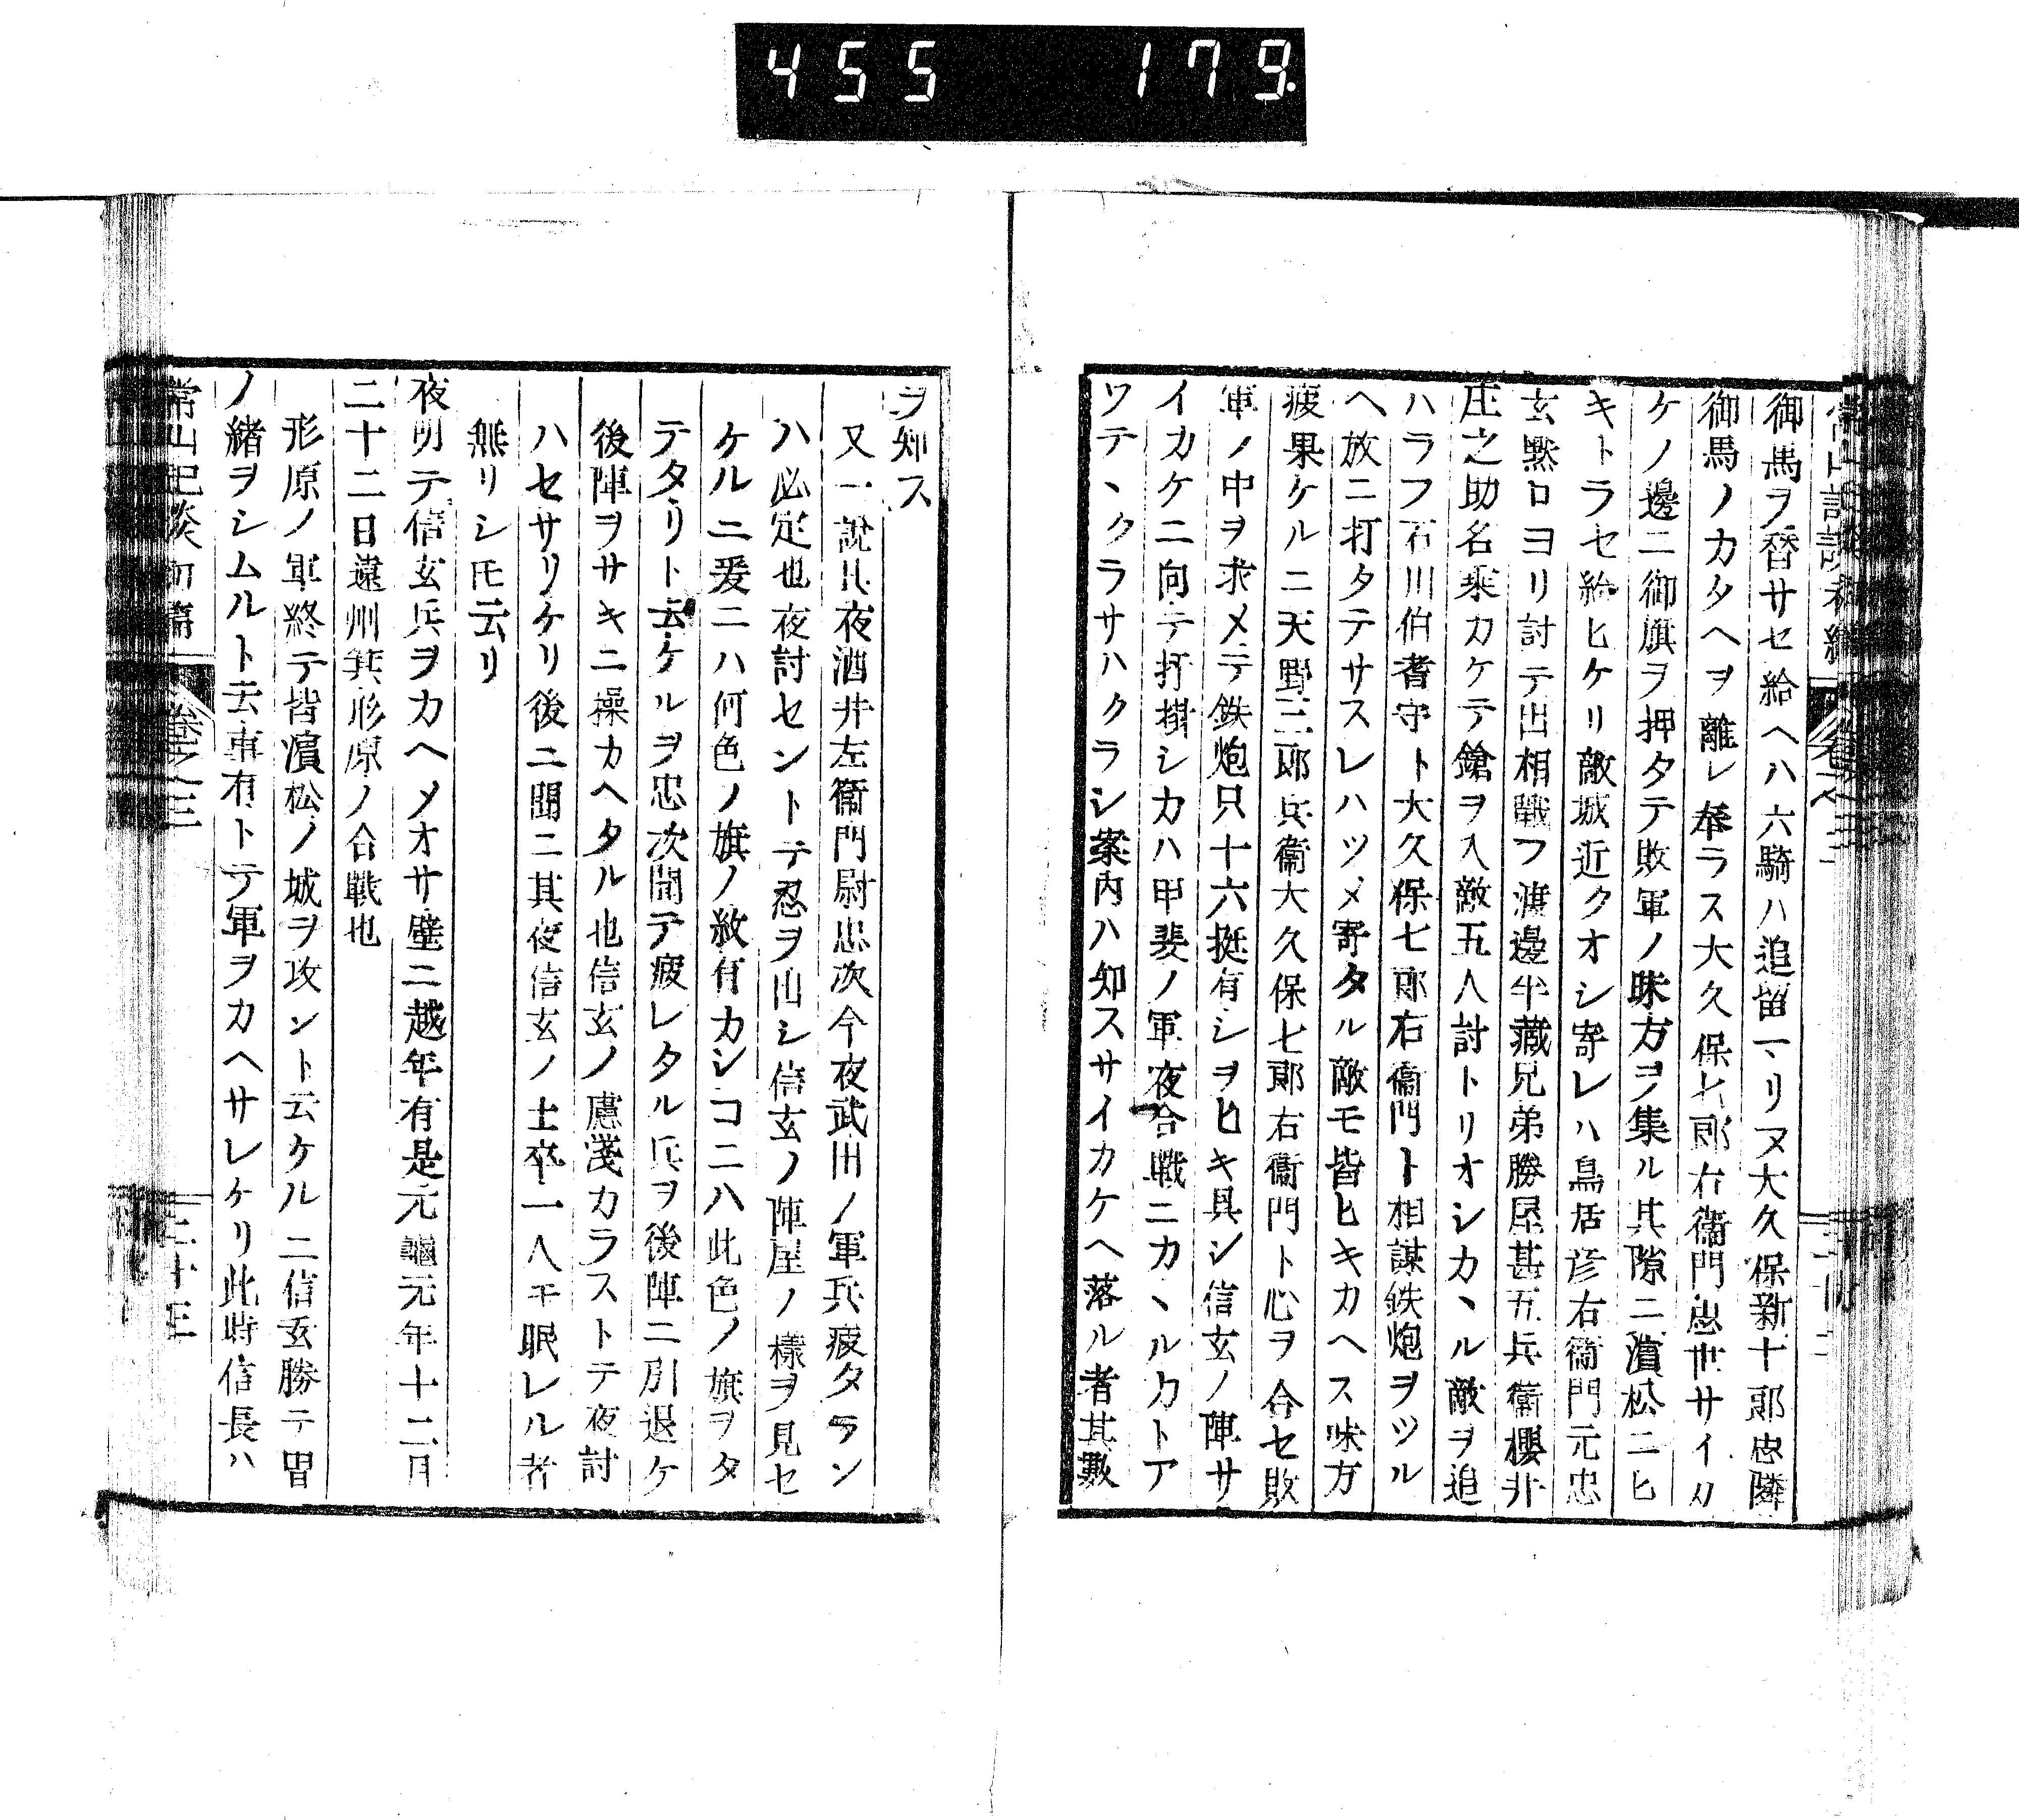 455 179.
御馬ヲ替サセ給ヘハ六騎ハ追留マリヌ大久保新十郎忠隣
御馬ノカタヘヲ離レ奉ラス大久保七郎右衞門忠世サイカ
ケノ邊ニ御旗ヲ押タテ敗軍ノ味方ヲ集ル其隙ニ濵松ニヒ
キトラセ給ヒケリ敵城近クオシ寄レハ鳥居彦右衞門元忠
玄黙口ヨリ討テ出相戰フ渡邊半藏兄弟勝屋甚五兵衞櫻井
庄之助名乘カケテ鎗ヲ入敵五人討トリオシカヽル敵ヲ追
ハラフ石川伯耆守ト大久保七郎右衞門ト相謀鉄炮ヲツル
ヘ放ニ打タテサスレハツメ寄タル敵モ皆ヒキカヘス味方
疲果ケルニ天野三郎兵衞大久保七郎右衞門ト心ヲ合セ敗
軍ノ中ヲ求メテ鉄炮只十六挺有シヲヒキ具シ信玄ノ陣サ
イカケニ向テ打掛シカハ甲斐ノ軍夜合戰ニカヽルカトア
ワテヽクラサハクラシ案内ハ知スサイカケヘ落ル者其數
ヲ知ス
又一說其夜酒井左衞門尉忠次今夜武田ノ軍兵疲タラン
ハ必定也夜討セントテ忍ヲ出シ信玄ノ陣屋ノ樣ヲ見セ
ケルニ爰ニハ何色ノ旗ノ紋有カシコニハ此色ノ旗ヲタ
テタリト云ケルヲ忠次聞テ疲レタル兵ヲ後陣ニ引退ケ
後陣ヲサキニ操カヘタル也信玄ノ慮淺カラストテ夜討
ハセサリケリ後ニ聞ニ其夜信玄ノ士卒一人モ眠レル者
無リシ𪜈云リ
夜明テ信玄兵ヲカヘメオサ壁ニ越年有是元龜元年十二月
二十二日遠州箕形原ノ合戰也
形原ノ軍終テ皆濵松ノ城ヲ攻ント云ケルニ信玄勝テ冑
ノ緒ヲシムルト云事有トテ軍ヲカヘサレケリ此時信長ハ
常山紀談初篇 卷之三 三十三